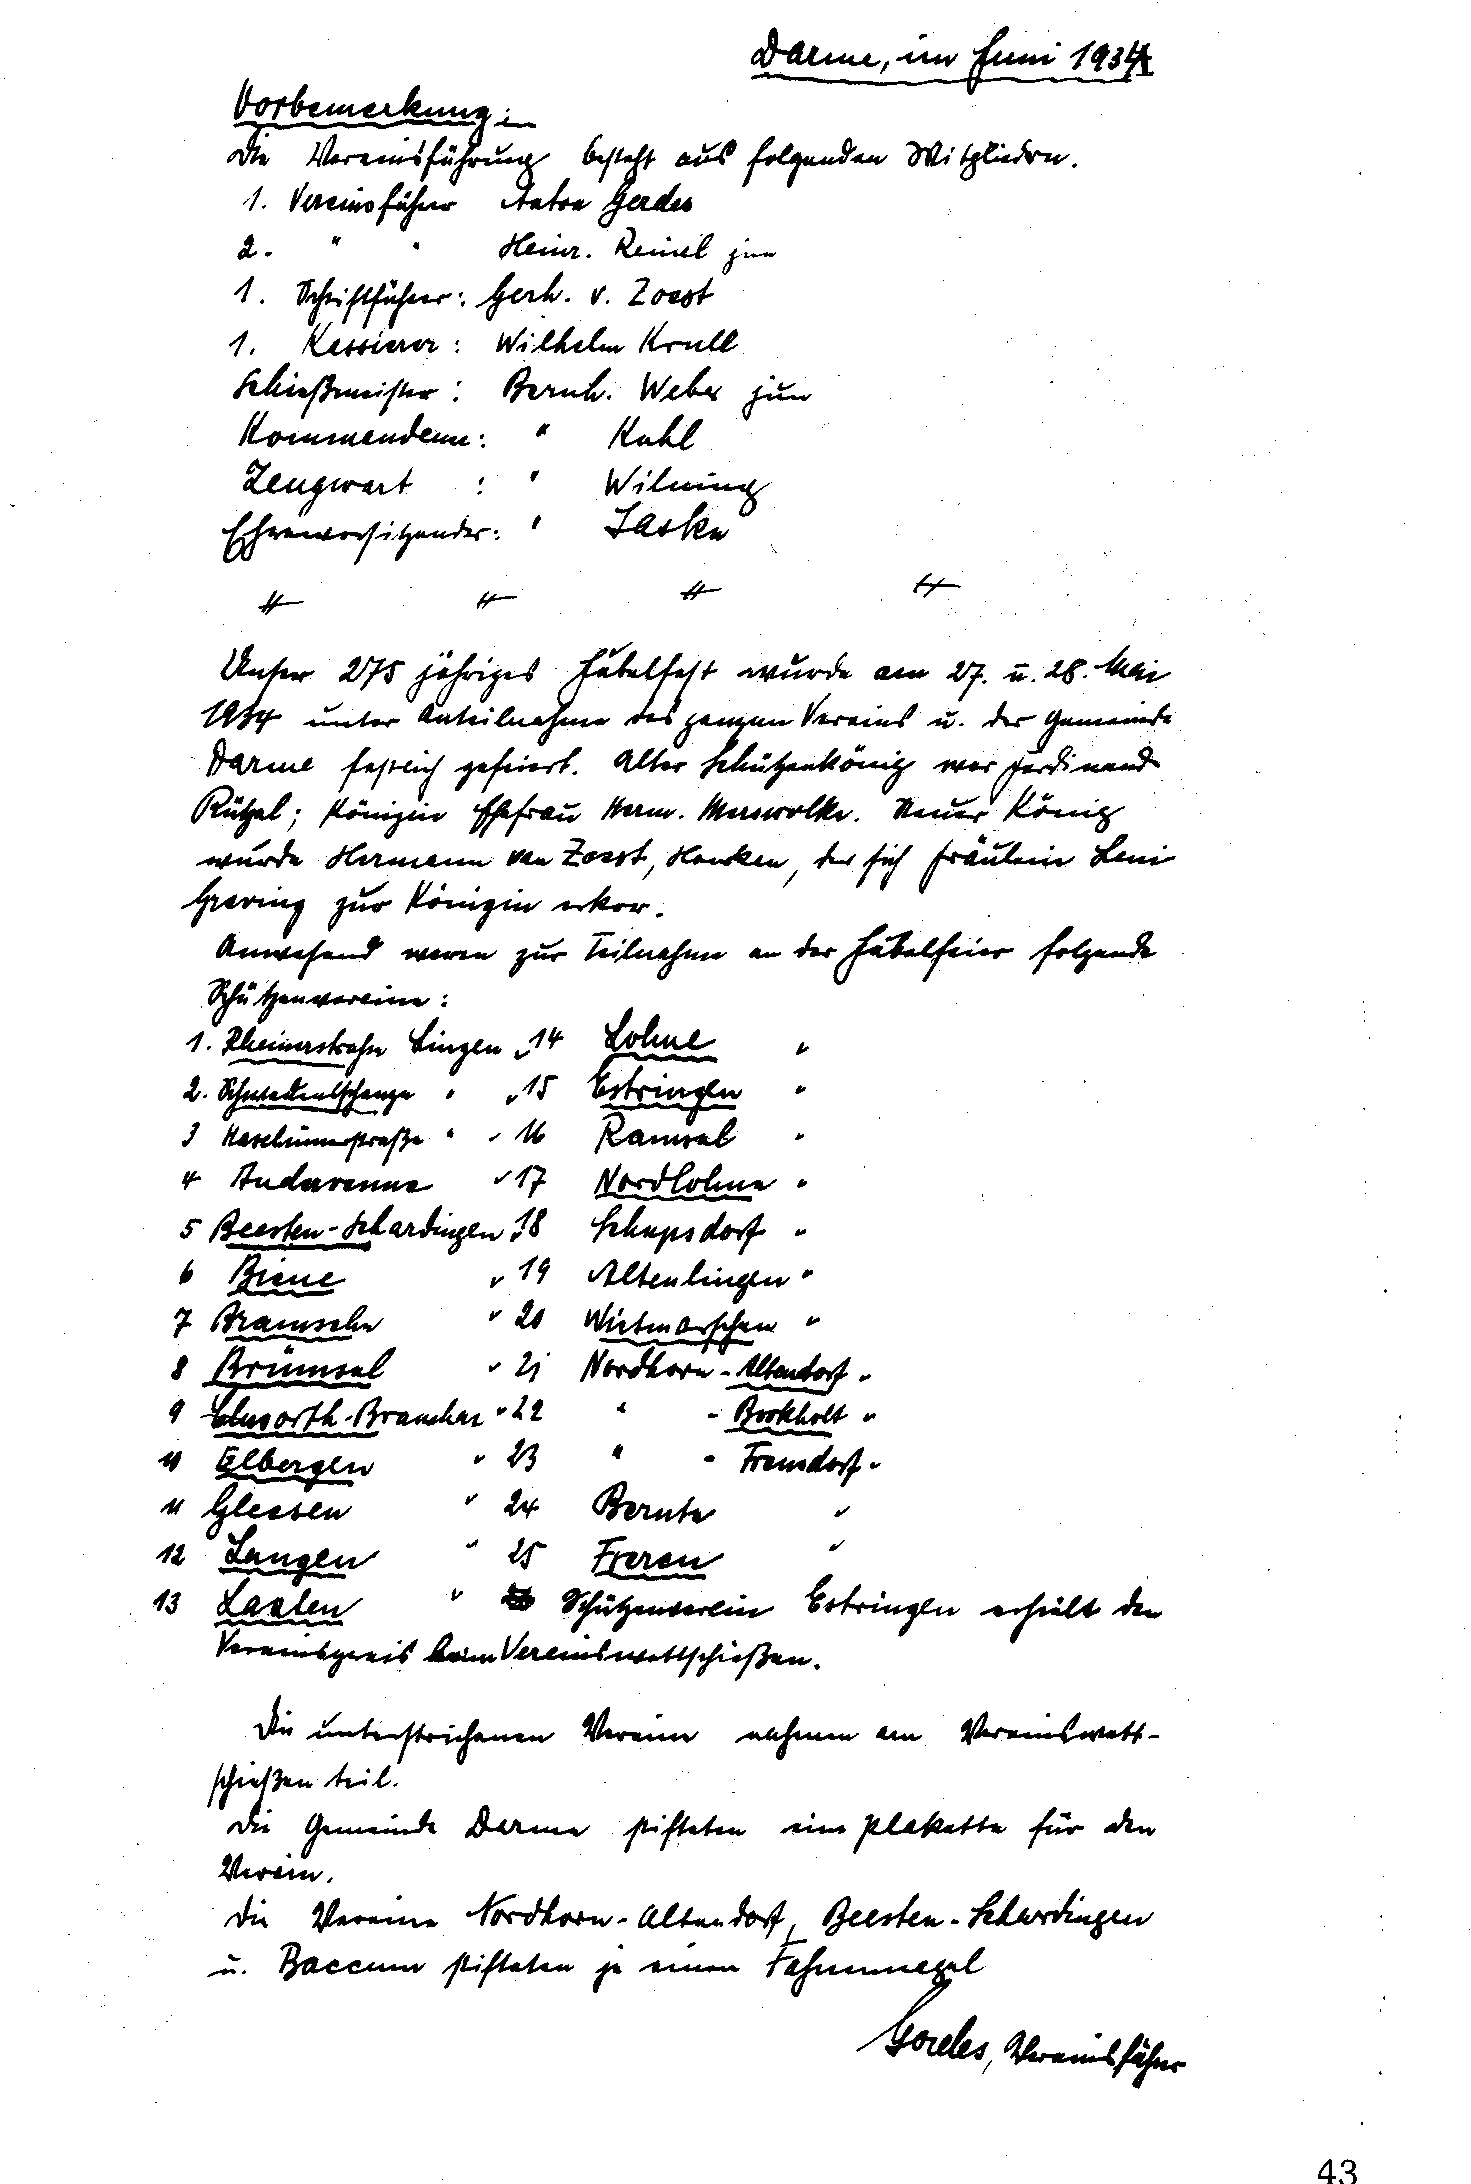 Darme, im Juni 1934
Vorbemerkung:
Die Vereinsführung besteht aus folgenden Mitgliedern.
1. Vereinsführer Anton Gerdes
2. " " Heinr. Reinel jun
1. Schriftführer: Gerh. v. Zoest
1. Kassierer: Wilhelm Krull
Schießmeister: Bernh. Weber jun
Kommandeur: " Kuhl
Zeugwart : " Wilming
Ehrenvorsitzender: " Laske
Unser 275 jähriges Jubelfest wurde am 27. u. 28. Mai
1934 unter Anteilnahme des ganzen Vereins u. der Gemeinde
Darme festlich gefeiert. Alter Schützenkönig war Ferdinand
Rützel; Königin Ehefrau Herm. Merswolke. Neuer König
wurde Hermann van Zoest, der sich Fräulein Leni
Grering zur Königin erkor.
Anwesend waren zur Teilnahme an der Jubelfeier folgende
Schützenvereine:
1. Rheinerstraße Lingen " 14 Lohne "
2. Schwedenschanze " " 15 Estringen "
3 Haselünnerstraße " " 16 Ramsel "
4 Andervenne " 17 Nordlohne "
5 Beesten-Schardingen " 18 Schepsdorf "
6 Biene " 19 Altenlingen "
7 Bramsche " 20 Wietmarschen "
8 Brümsel " 21 Nordhorn - Altendorf "
9 Elmsorth-Bramhar " 22 " - Bookholt "
10 Elbergen " 23 " - Frensdorf "
11 Gleesen " 24 Bernte "
12 Langen " 25 Freren "
13 Laxten " Schützenverein Estringen erhielt den
Vereinspreis beim Vereinswettschießen.
Die unterstrichenen Vereine nahmen am Vereinswett-
schießen teil.
Die Gemeinde Darme stifteten eine Plakette für den
Verein.
Die Vereine Nordhorn-Altendorf, Beesten-Schardingen
u. Baccum stifteten je einen Fahnennagel
Gerdes, Vereinsführer
43